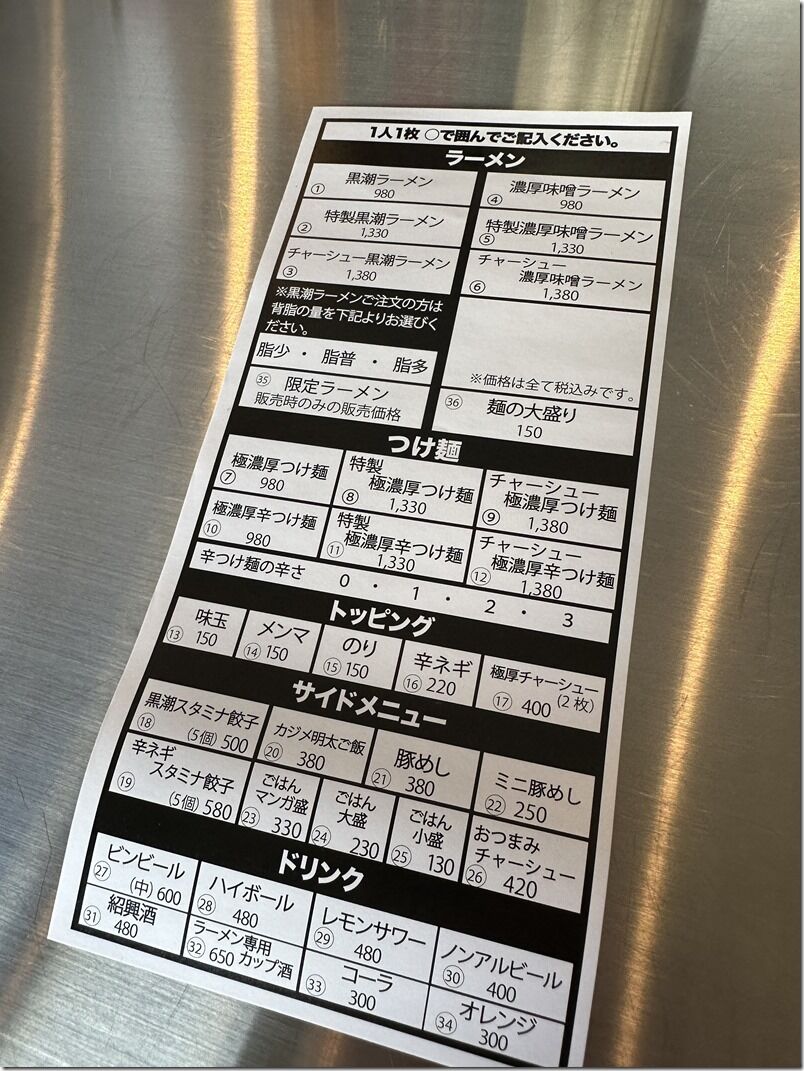 1人1枚 ○で囲んでご記入ください。
ラーメン
① 黒潮ラーメン
980
④ 濃厚味噌ラーメン
980
② 特製黒潮ラーメン
1,330
⑤ 特製濃厚味噌ラーメン
1,330
③ チャーシュー黒潮ラーメン
1,380
⑥ チャーシュー
濃厚味噌ラーメン
1,380
※黒潮ラーメンご注文の方は
背脂の量を下記よりお選びく
ださい。
脂少 ・ 脂普 ・ 脂多
※価格は全て税込みです。
㉟ 限定ラーメン
販売時のみの販売価格
㊱ 麺の大盛り
150
つけ麺
⑦ 極濃厚つけ麺
980
⑧ 特製
極濃厚つけ麺
1,330
⑨ チャーシュー
極濃厚つけ麺
1,380
⑩ 極濃厚辛つけ麺
980
⑪ 特製
極濃厚辛つけ麺
1,330
⑫ チャーシュー
極濃厚辛つけ麺
1,380
辛つけ麺の辛さ 0 ・ 1 ・ 2 ・ 3
トッピング
⑬ 味玉
150
⑭ メンマ
150
⑮ のり
150
⑯ 辛ネギ
220
⑰ 極厚チャーシュー
400 (2枚)
サイドメニュー
⑱ 黒潮スタミナ餃子
(5個) 500
⑳ カジメ明太ご飯
380
㉑ 豚めし
380
㉒ ミニ豚めし
250
⑲ 辛ネギ
スタミナ餃子
(5個) 580
㉓ ごはん
マンガ盛
330
㉔ ごはん
大盛
230
㉕ ごはん
小盛
130
㉖ おつまみ
チャーシュー
420
ドリンク
㉗ ビンビール
(中) 600
㉘ ハイボール
480
㉙ レモンサワー
480
㉚ ノンアルビール
400
㉛ 紹興酒
480
㉜ ラーメン専用
650 カップ酒
㉝ コーラ
300
㉞ オレンジ
300